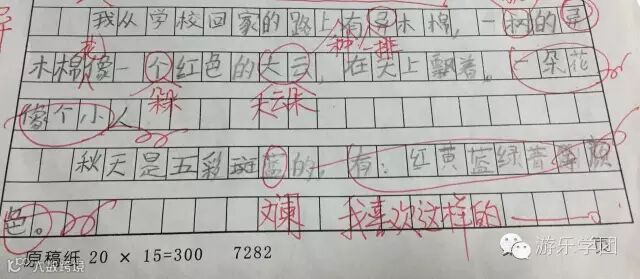 我从学校回家的路上有异木棉，一树的异
种 排
木棉像一个红色的大云，在天上飘着，一朵花
花
朵 大云朵
像个小人
秋天是五彩斑蓝的，有：红黄蓝绿青等颜
色。
斓 我喜欢这样的
原稿纸 20 × 15=300 7282 第 页
游乐学园
大数跨境